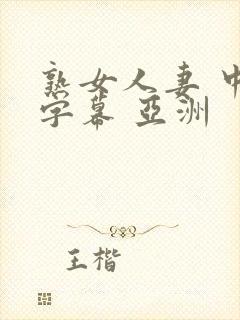 熟女人妻 中
字幕 亞洲
王楷